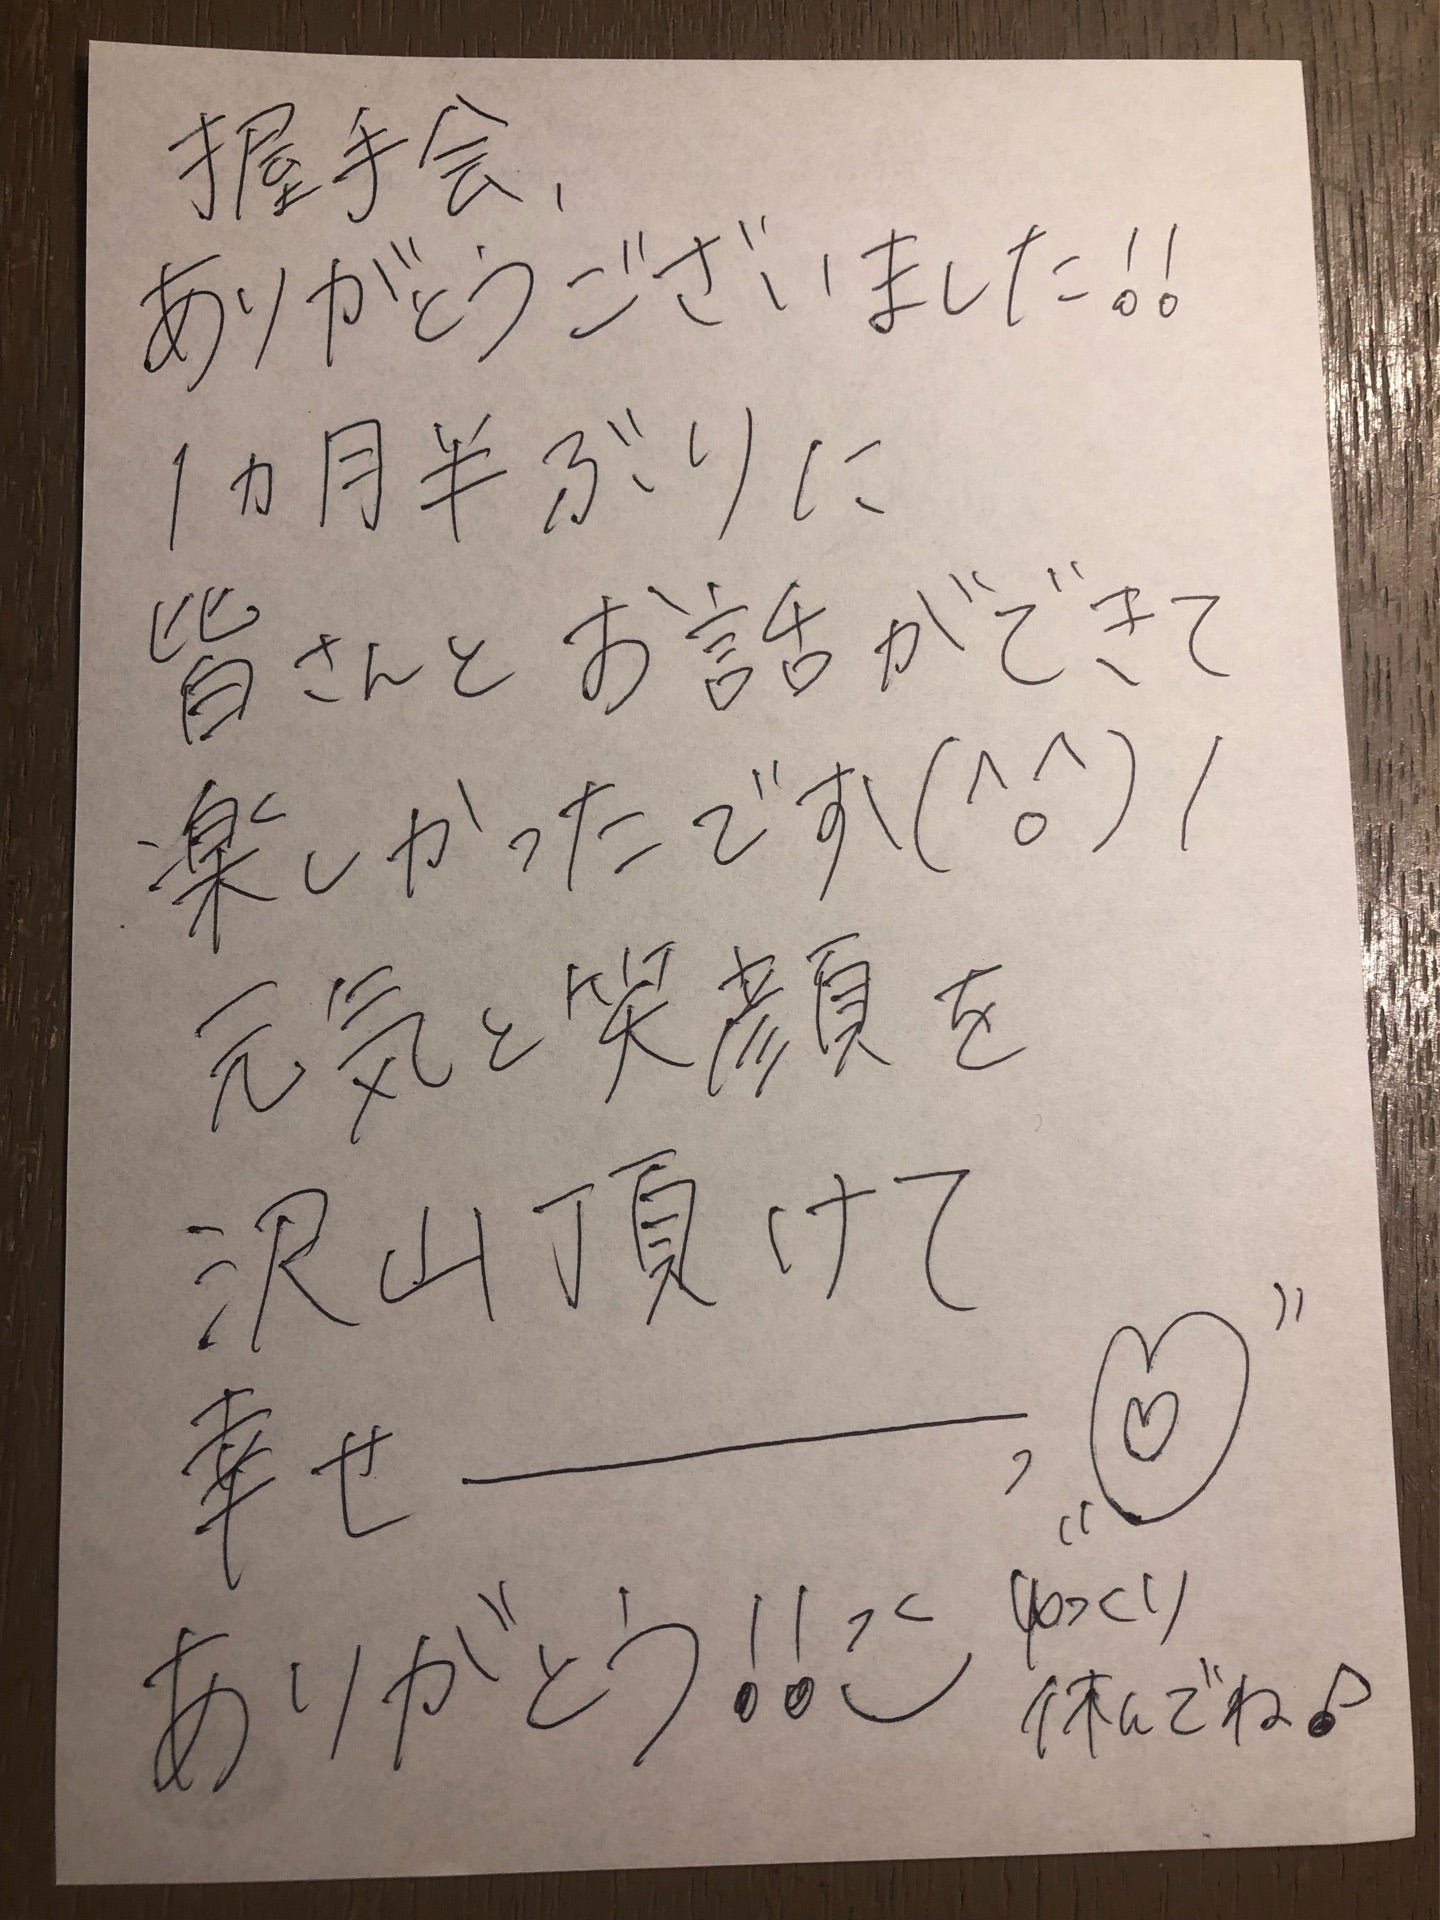 握手会、
ありがとうございました!!
1ヵ月半ぶりに
皆さんとお話ができて
楽しかったです\(^o^)/
元気と笑顔を
沢山頂けて
幸せーっ
ありがとう!!
ゆっくり
休んでね♪